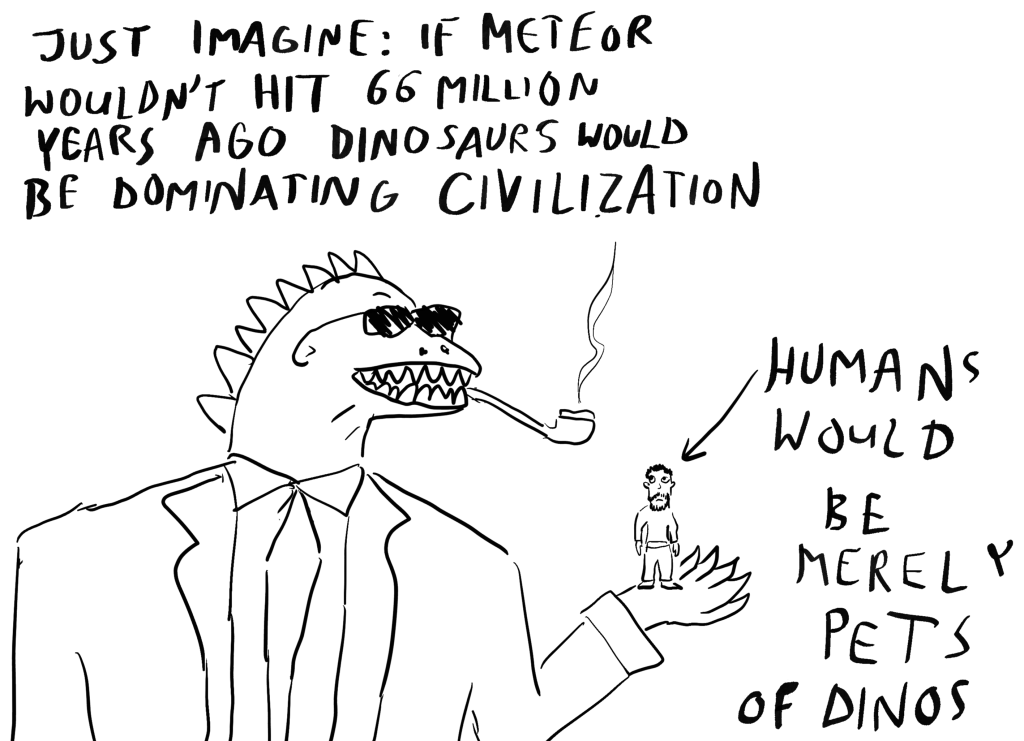 JUST IMAGINE: IF METEOR
WOULDN'T HIT 66 MILLION
YEARS AGO DINOSAURS WOULD
BE DOMINATING CIVILIZATION
HUMANS
WOULD
BE
MERELY
PETS
OF DINOS